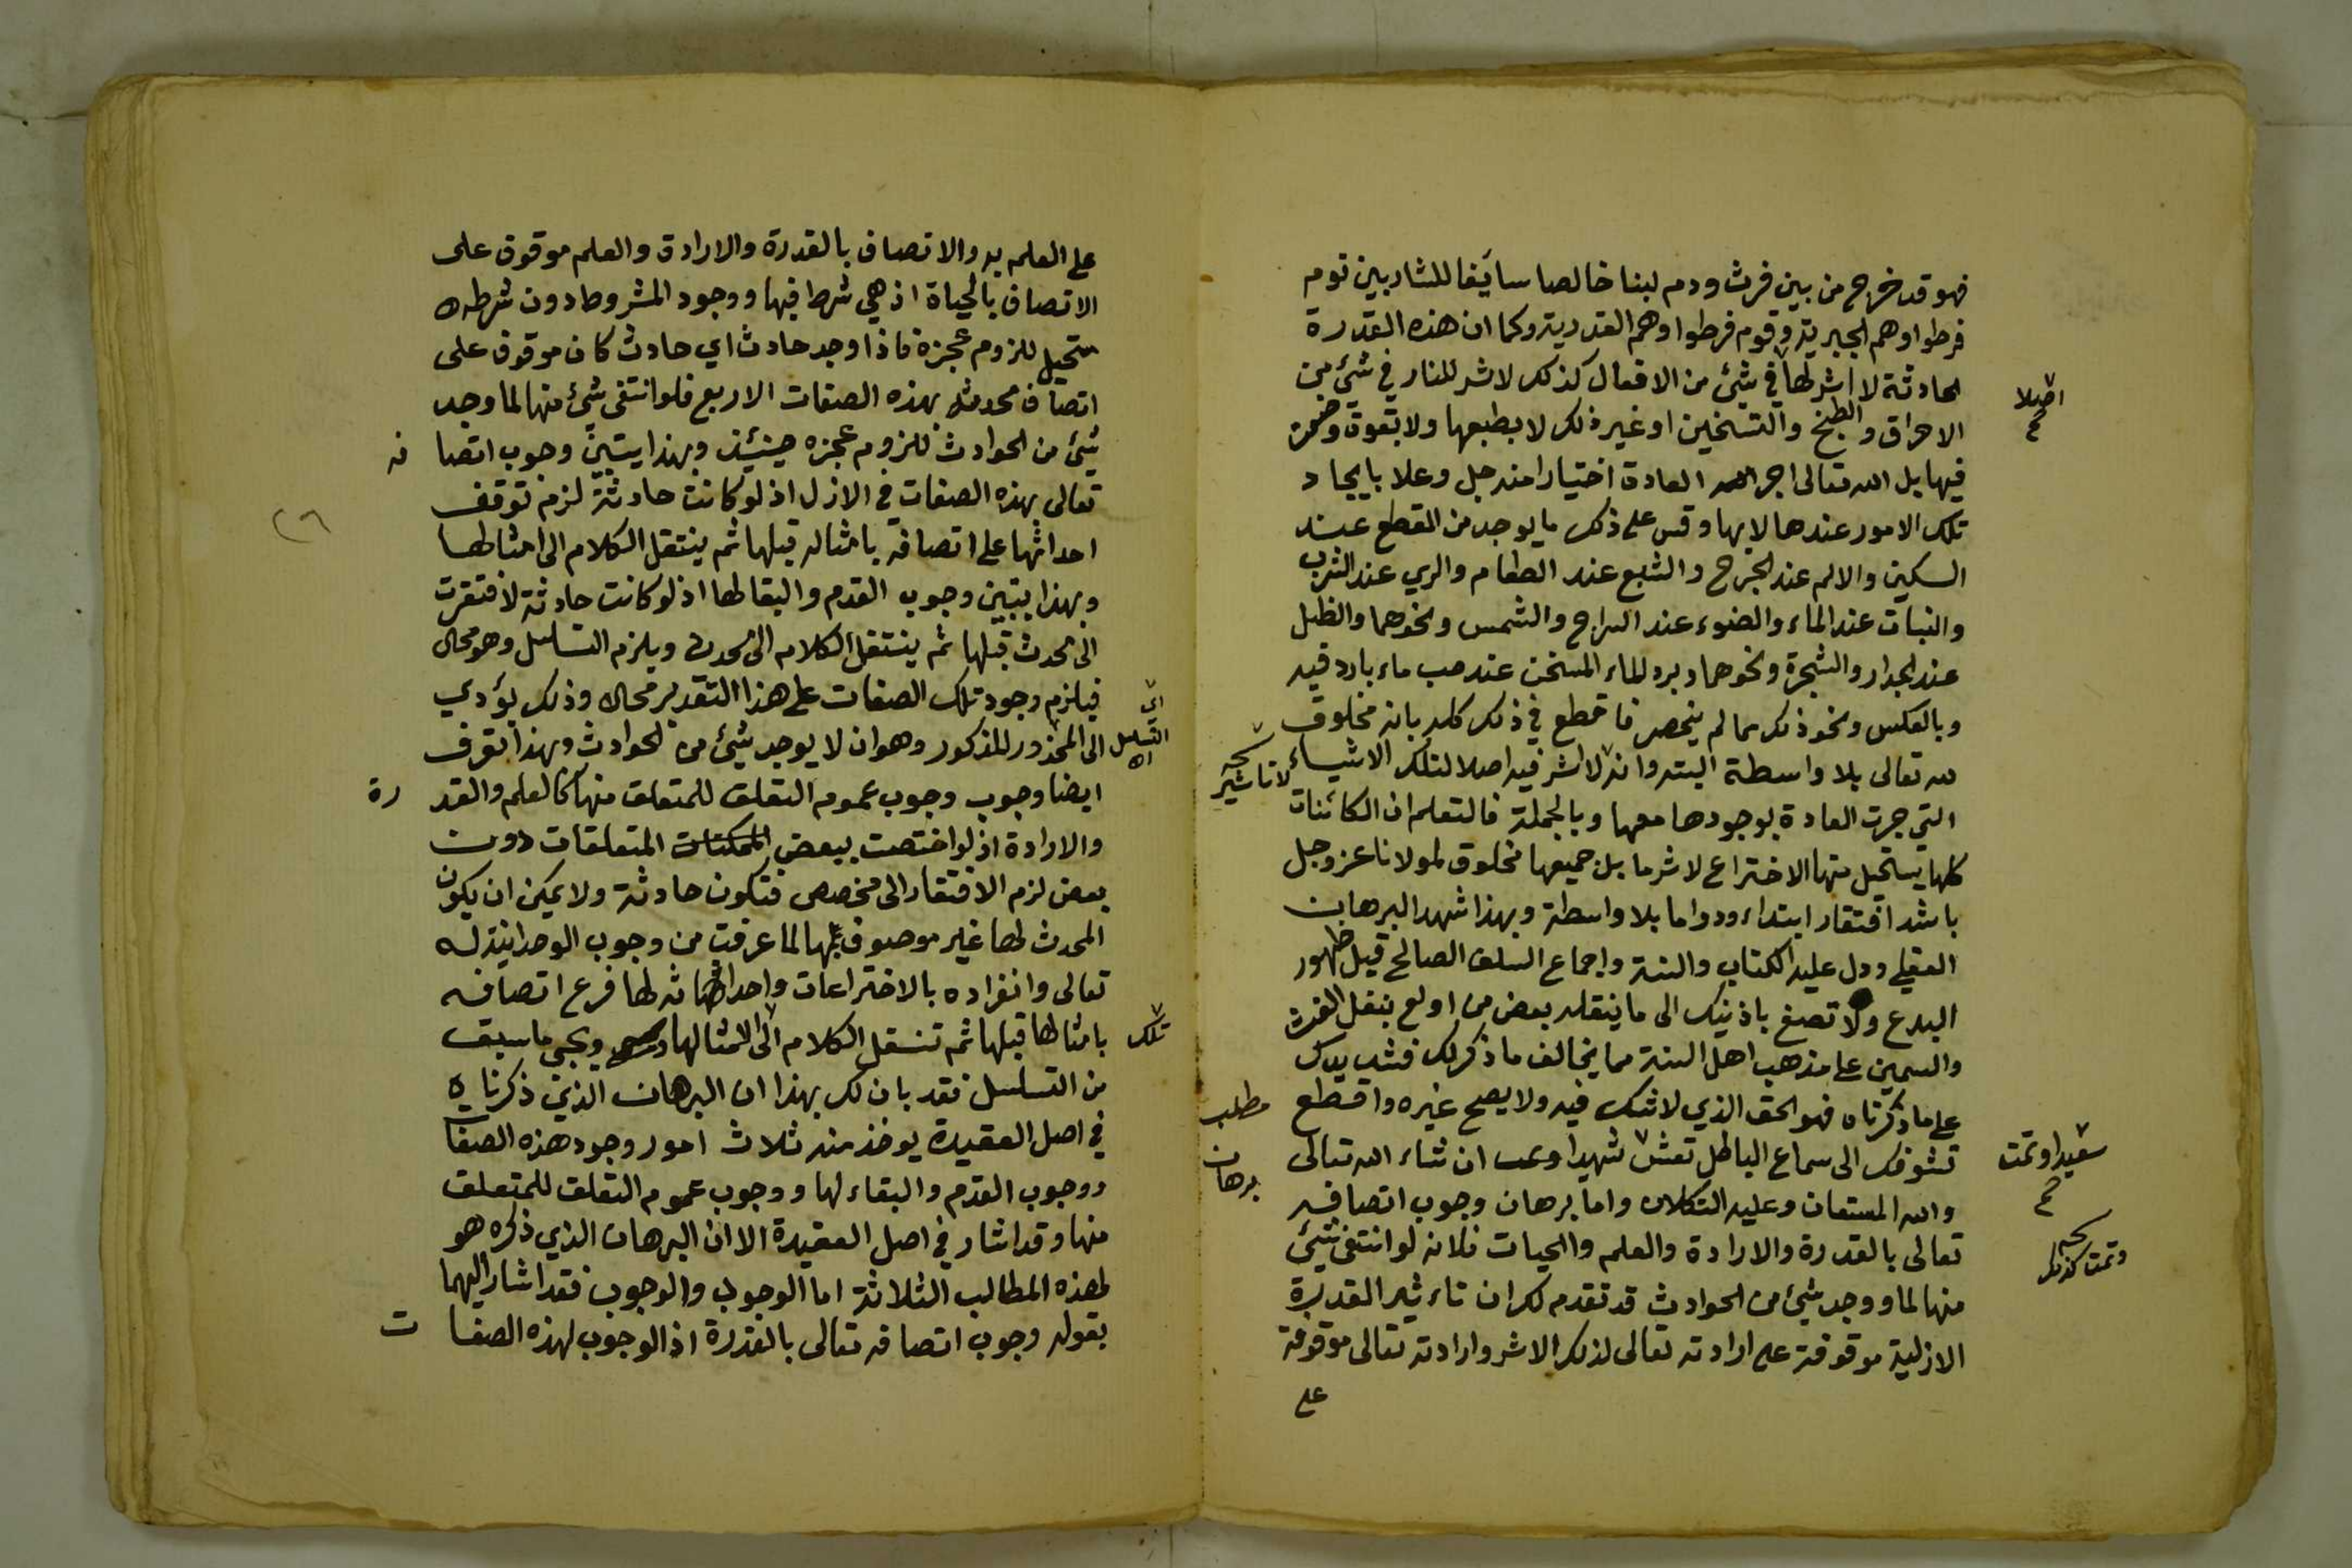 فهو قد خرج من بين فرث ودم لبنا خالصا سآيغا للشاربين قوم
فرطوا وهم الجبرية وقوم فرطوا وهم القدرية وكما ان هذه القدرة
الحادثة لا اثر لها في شئ من الافعال كذلك لا اثر للنار في شئ من
اصلا
الاحراق والطبخ والتسخين او غير ذلك لا بطبعها ولا بقوة وضعت
فيها بل الله تعالى اجرا العادة اختيارا منه جل وعلا بايجاد
تلك الامور عندها لا بها وقس على ذلك ما يوجد من القطع عند
السكين والالم عند الجرح والشبع عند الطعام والري عند الشرب
والنبات عند الماء والضوء عند السراج والشمس ونحوهما والظل
عند الجدار والشجرة ونحوهما وبرد الماء المسخن عند صب ماء بارد فيه
وبالعكس ونحو ذلك مما لم ينحصر فاقطع في ذلك كله بانه مخلوق
لله تعالى بلا واسطة البتة وانه لا اثر فيه اصلا لتلك الاشياء
لا تاثير
التي جرت العادة بوجودها معها وبالجملة فالتعلم ان الكائنات
كلها يستحيل منها الاختراع لاثر ما بل جميعها مخلوق لمولانا عز وجل
باشد افتقار ابتداء ودواما بلا واسطة وبهذا شهد البرهان
العقلي ودل عليه الكتاب والسنة واجماع السلف الصالح قبل ظهور
البدع ولا تصغ باذنيك الى ما ينقله بعض من اولع بنقل الغث
والسمين على مذهب اهل السنة مما يخالف ما ذكر لك فشد يدك
على ما ذكرناه فهو الحق الذي لا شك فيه ولا يصح غيره واقطع
مطلب
تشوفك الى سماع الباطل تعش شهيدا ان شاء الله تعالى
سعيدا وتمت
برهان
والله المستعان وعليه التكلان واما برهان وجوب اتصافه
تعالى بالقدرة والارادة والعلم والحيات فلانه لو انتفى شئ
وتمت كذلك
منها لما ووجد شئ من الحوادث قد تقدم لك ان تاءثير القدرة
الازلية موقوفة على ارادته تعالى لذلك الاثر وارادته تعالى موقوفة
على
على العلم به والاتصاف بالقدرة والارادة والعلم موقوق على
الاتصاف بالحياة اذ هي شرط فيها ووجود المشروط دون شرطه
مستحيل للزوم عجزة فاذا وجد حادث اي حادث كان موقوف على
اتصاف محدثه بهذه الصفات الاربع فلو انتفى شئ منها لما وجد
شئ من الحوادث للزوم عجزه حينئذ وبهذا يتبين وجوب اتصا فه
تعالى بهذه الصفات في الازل اذ لو كانت حادثة لزم توقف
احداثها على اتصافه بامثاله قبلها ثم ينتقل الكلام الى امثالها
٢٦
وبهذا يتبين وجوب القدم والبقا لها اذ لو كانت حادثة لافتقرت
الى محدث قبلها ثم ينتقل الكلام الى محدث ويلزم التسلسل وهو محال
فيلزم وجود تلك الصفات على هذا التقدير محالا وذلك يؤدي
اي التسلسل
الى المحذور المذكور وهو ان لا يوجد شئ من الحوادث وبهذا تعرف
ايضا وجوب وجوب عموم التعلق للمتعلق منها كالعلم والقد رة
والارادة اذ لو اختصت ببعض المتعلقات دون
بعض لزم الافتقار الى مخصص فتكون حادثة ولا يمكن ان يكون
المحدث لها غير موصوف بها لما عرفت من وجوب الوحدانية له
تعالى وانفراده بالاختراعات واحداثه لها فرع اتصافه
بامثالها قبلها ثم تنتقل الكلام الى امثالها ويجي ما سبق
تلك
من التسلسل فقد بان لك بهذا ان البرهان الذي ذكرناه
في اصل العقيدة يوخذ منه ثلاث امور وجود هذه الصفات
ووجوب القدم والبقاء لها ووجوب عموم التعلق للمتعلق
منها وقد اشار في اصل العقيدة الا ان البرهان الذي ذكره هو
لهذه المطالب الثلاثة اما الوجوب والوجوب فقد اشار اليهما
بقوله وجوب اتصافه تعالى بالقدرة اذ الوجوب لهذه الصفا ت